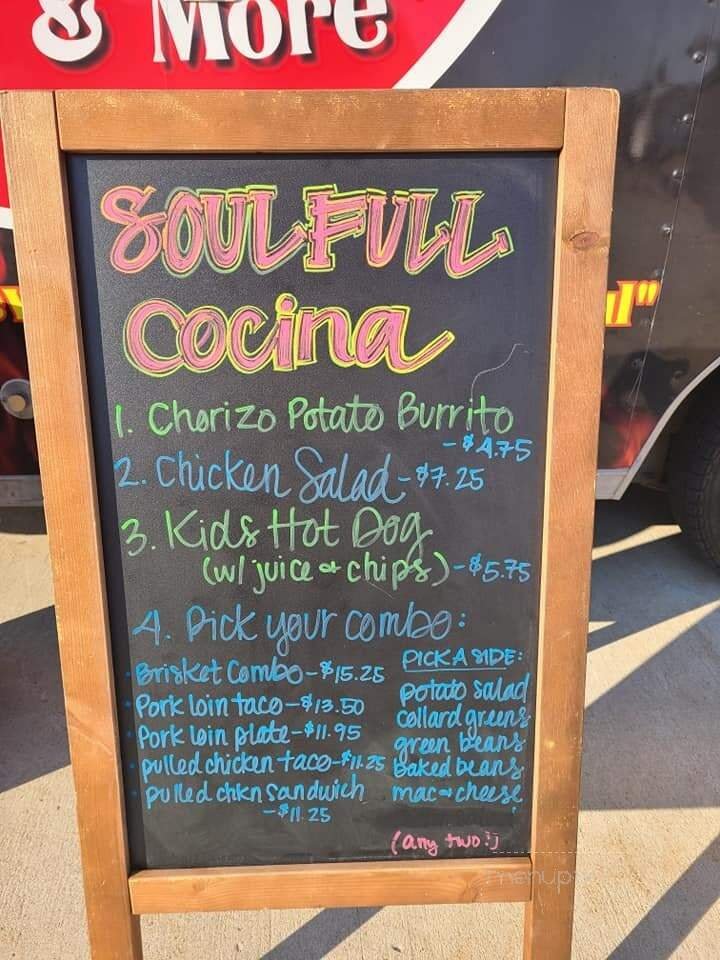 & More
SOULFULL
Cocina
1. Chorizo Potato Burrito
- $4.75
2. Chicken Salad - $7.25
3. Kids Hot Dog
(w/ juice & chips) - $5.75
4. Pick your combo:
Brisket Combo - $15.25
Pork loin taco - $13.50
Pork loin plate - $11.95
pulled chicken taco - $11.25
pulled chkn sandwich
- $11.25
PICK A SIDE:
potato salad
collard greens
green beans
baked beans
mac & cheese
(any two!)